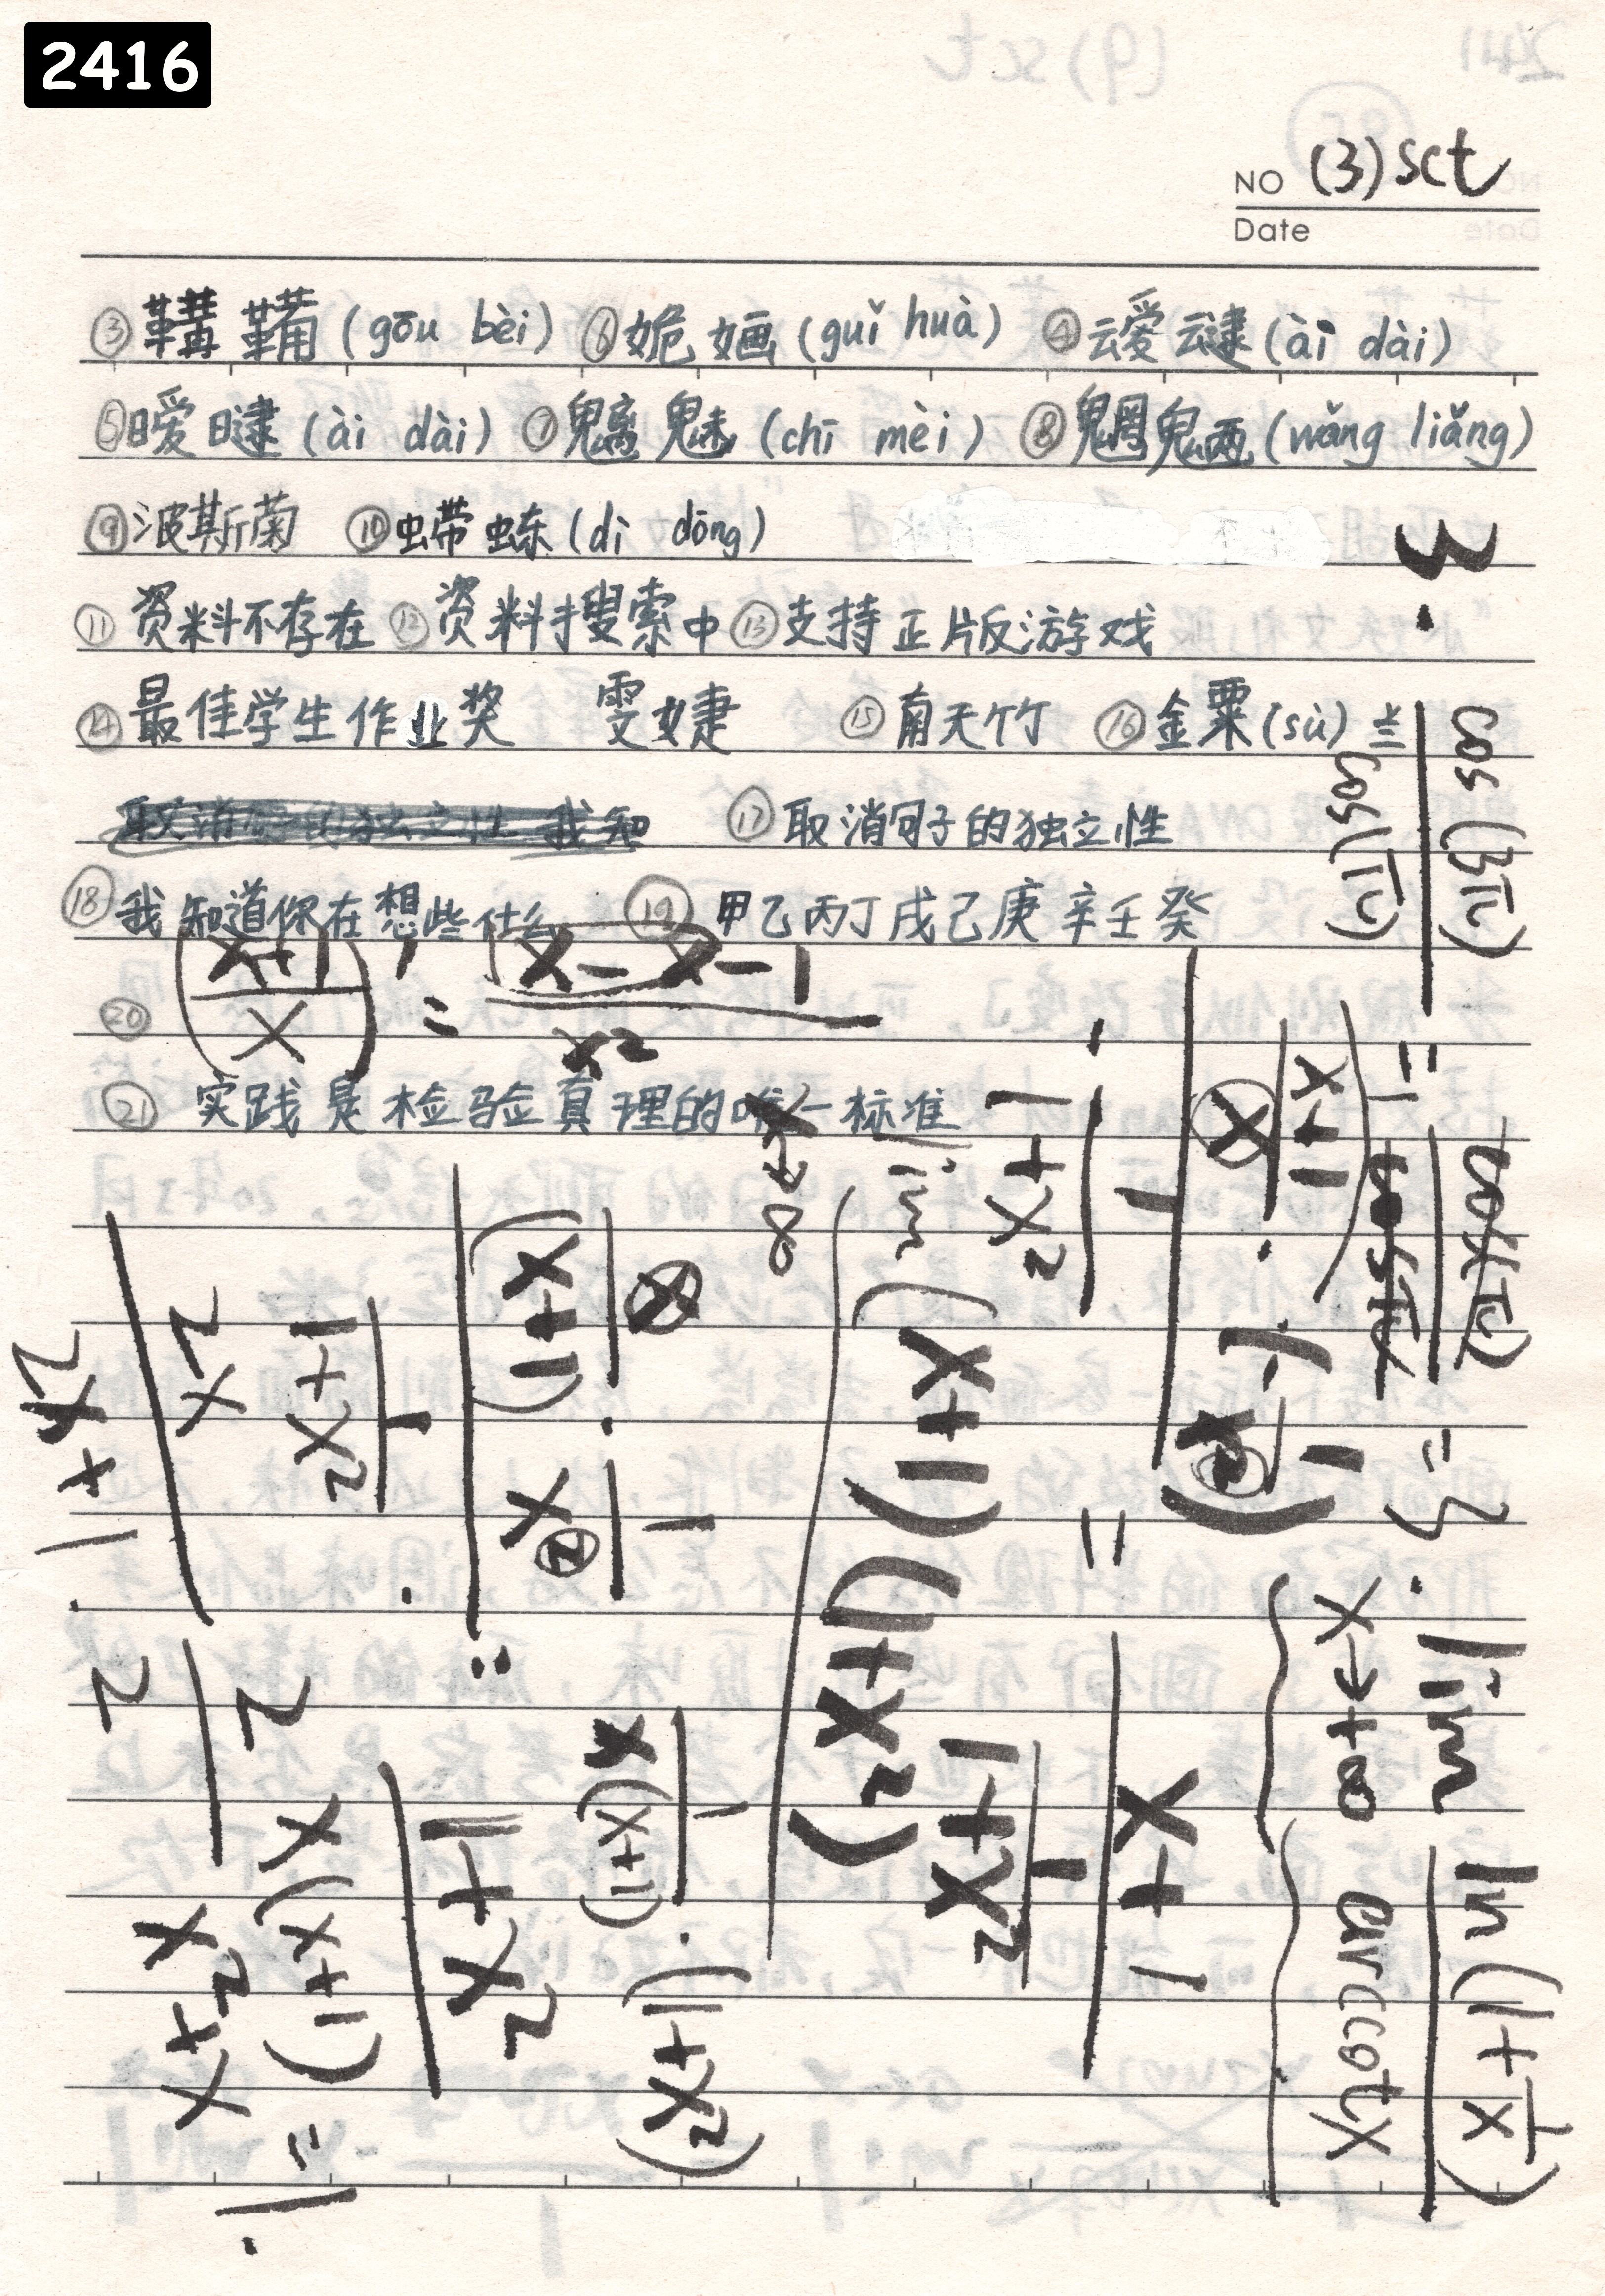 2416
NO (3) sct
Date
③ 鞲鞴 (gōu bèi) ⑥ 姽婳 (guǐ huà) ④ 叆叇 (ài dài)
⑤ 暧曃 (ài dài) ⑦ 魑魅 (chī mèi) ⑧ 魍魉 (wǎng liǎng)
⑨ 波斯菊 ⑩ 螮蝀 (dì dōng)
⑪ 资料不存在 ⑫ 资料搜索中 ⑬ 支持正版游戏
⑭ 最佳学生作业奖 雯婕 ⑮ 南天竹 ⑯ 金粟 (sù) 兰
⑰ 取消句子的独立性
⑱ 我知道你在想些什么 ⑲ 甲乙丙丁戊己庚辛壬癸
⑳
㉑ 实践是检验真理的唯一标准
((x+1)/x)' = (x-x-1)/x²
3.
cos(3π)/cos(π) = cos(π)/cosπ = 3.
lim x→+∞ ln(1+1/x)/arccotx
(x+1)/x
1+x²
lim x→∞ (x+1)(1+x²)
x+1
1+x²
(x+1)
x(x+1)
(1+x²)
1+x²
x²+1
2x
2x+1
2
2
x(x+1)
x²+x
= 1.